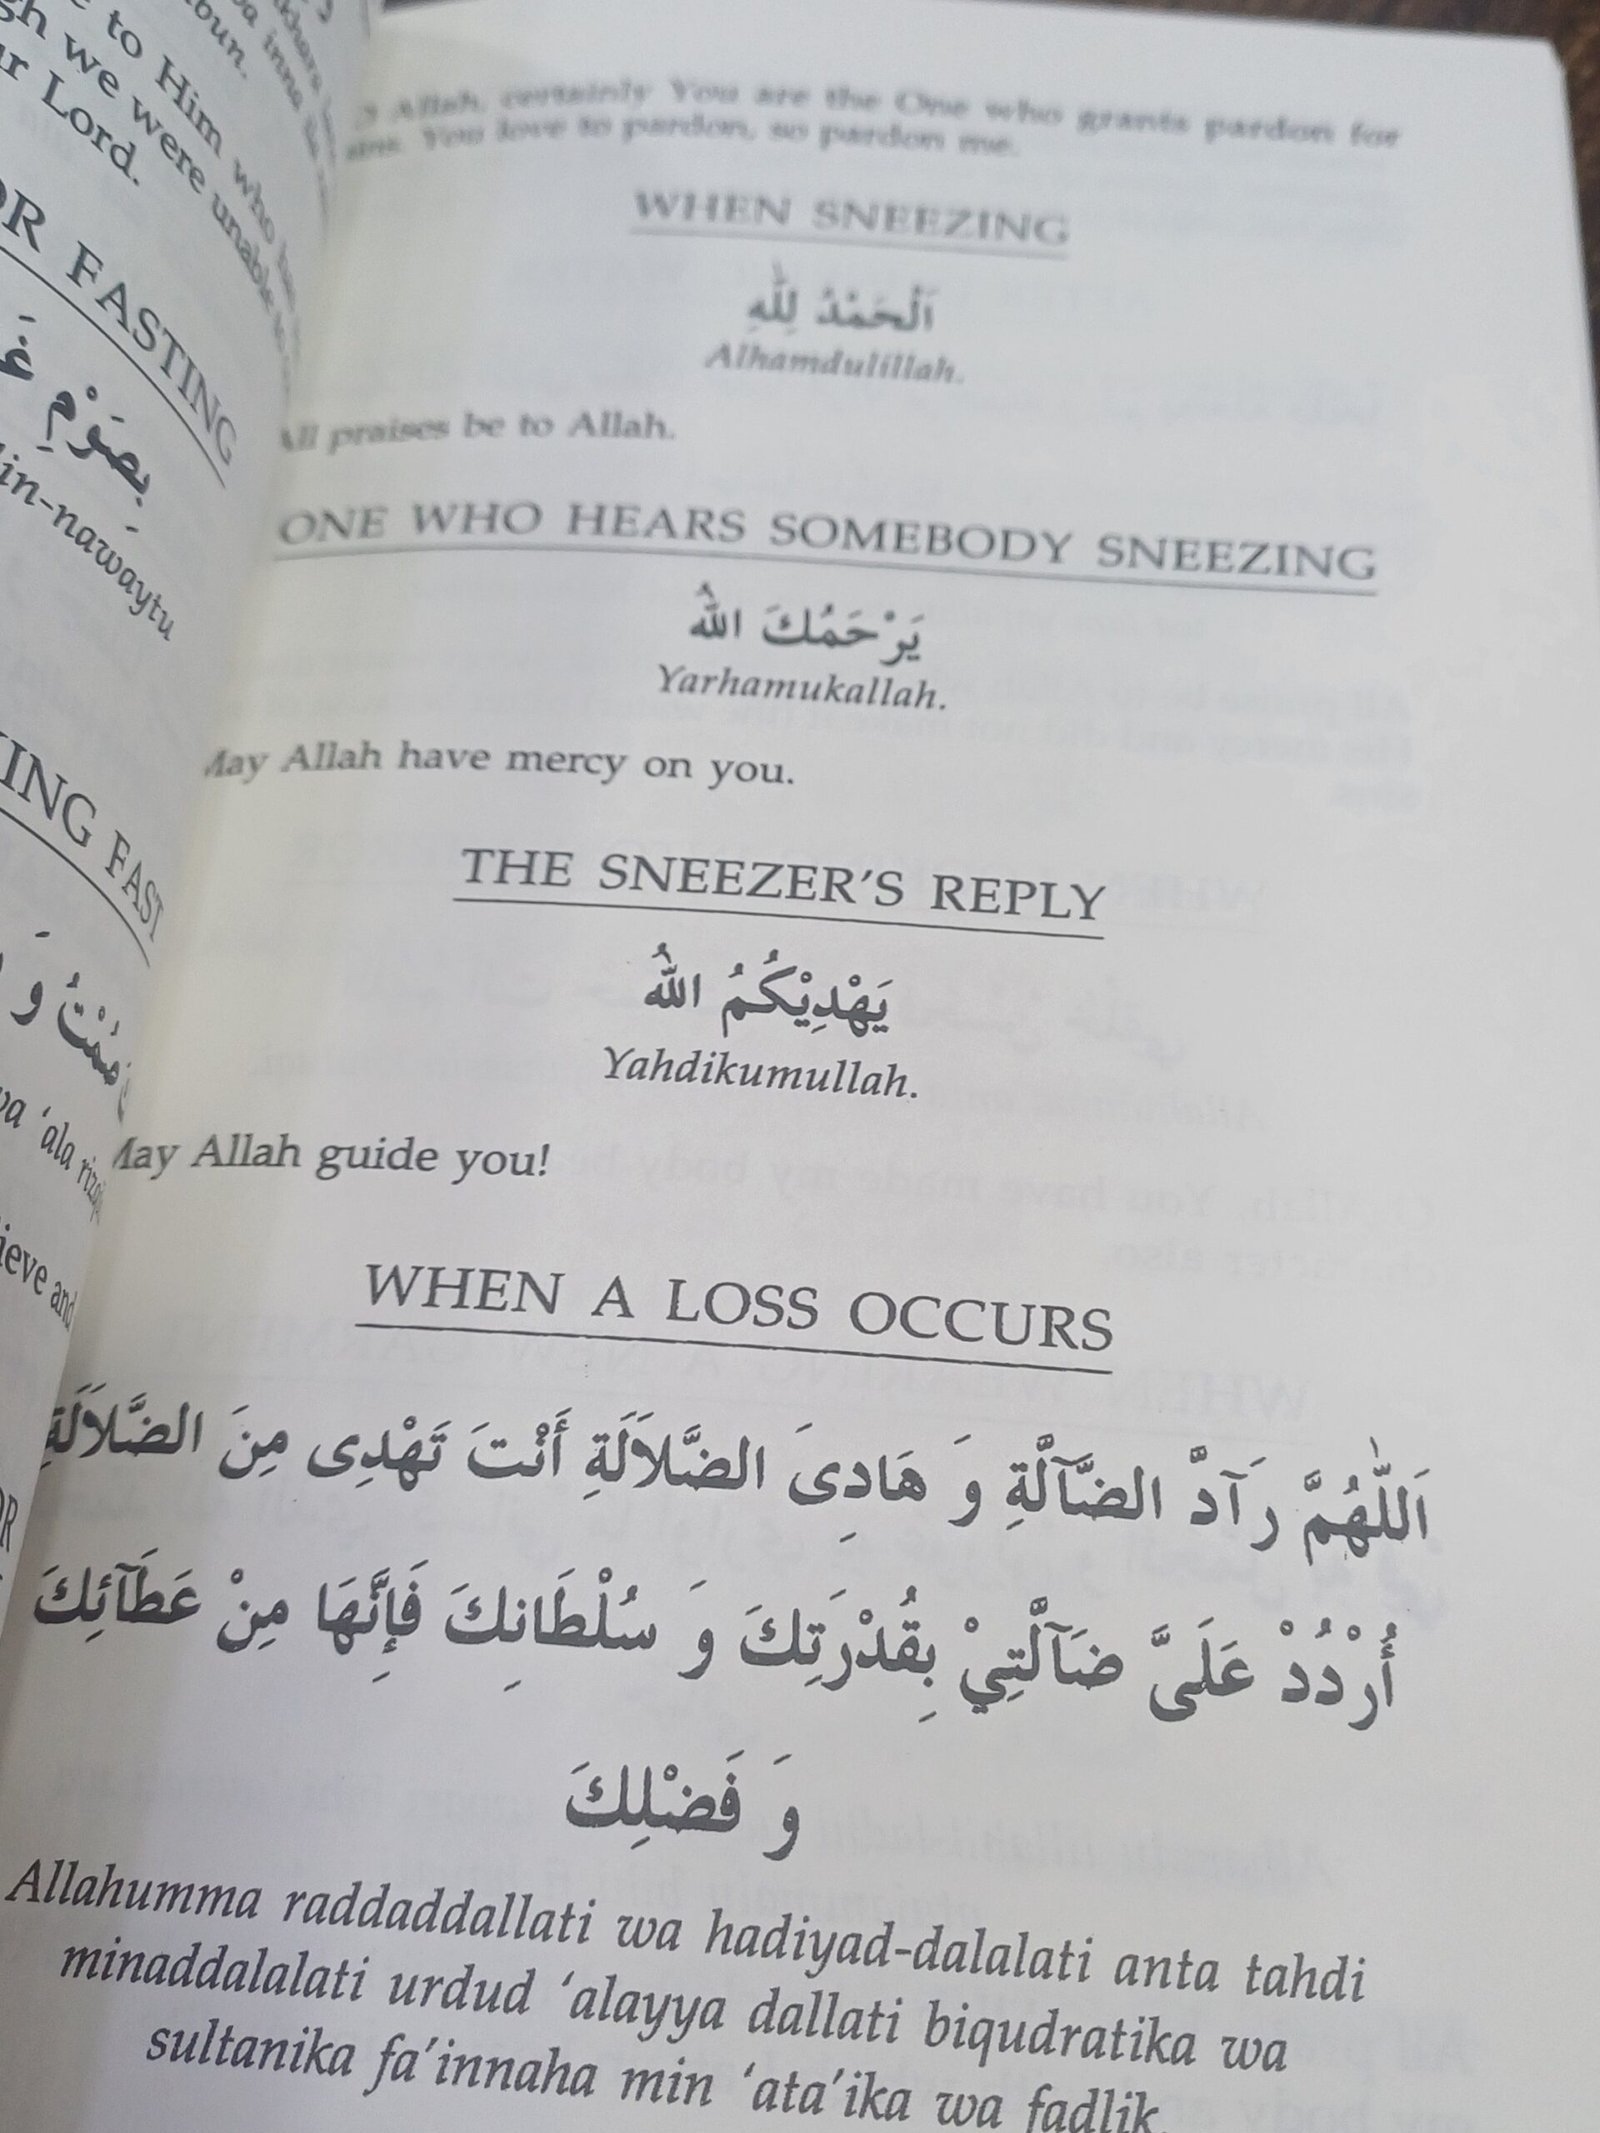 to Him who
we were unable
Lord.
FASTING
بِصَوْمِ
nawaytu
FAST
وَ
wa ‘ala
and
Allah, certainly You are the One who grants pardon for
sins. You love to pardon, so pardon me.
WHEN SNEEZING
اَلْحَمْدُ لِلّٰهِ
Alhamdulillah.
All praises be to Allah.
ONE WHO HEARS SOMEBODY SNEEZING
يَرْحَمُكَ اللهُ
Yarhamukallah.
May Allah have mercy on you.
THE SNEEZER’S REPLY
يَهْدِيْكُمُ اللهُ
Yahdikumullah.
May Allah guide you!
WHEN A LOSS OCCURS
اَللّٰهُمَّ رَآدَّ الضَّآلَّةِ وَ هَادِىَ الضَّلاَلَةِ أَنْتَ تَهْدِى مِنَ الضَّلاَلَةِ
أُرْدُدْ عَلَىَّ ضَآلَّتِيْ بِقُدْرَتِكَ وَ سُلْطَانِكَ فَإِنَّهَا مِنْ عَطَآئِكَ
وَ فَضْلِكَ
Allahumma raddaddallati wa hadiyad-dalalati anta tahdi
minaddalalati urdud ‘alayya dallati biqudratika wa
sultanika fa’innaha min ‘ata’ika wa fadlik.